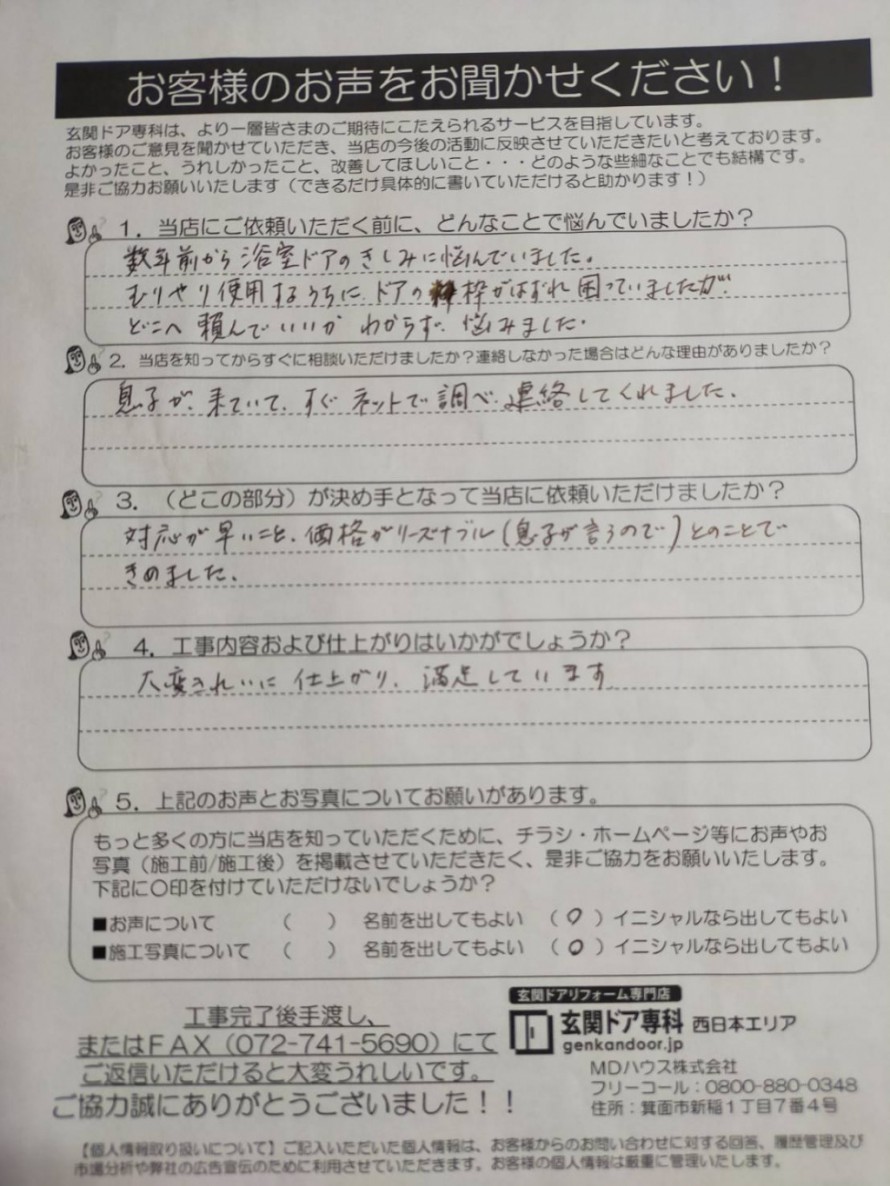 お客様のお声をお聞かせください！
玄関ドア専科は、より一層皆さまのご期待にこたえられるサービスを目指しています。
お客様のご意見を聞かせていただき、当店の今後の活動に反映させていただきたいと考えております。
よかったこと、うれしかったこと、改善してほしいこと・・・どのような些細なことでも結構です。
是非ご協力お願いいたします（できるだけ具体的に書いていただけると助かります！）
1．当店にご依頼いただく前に、どんなことで悩んでいましたか？
数年前から浴室ドアのきしみに悩んでいました。
むりやり使用するうちに、ドアの枠がはずれ困っていましたが、
どこへ頼んでいいかわからず、悩みました。
2．当店を知ってからすぐに相談いただけましたか？連絡しなかった場合はどんな理由がありましたか？
息子が、来ていて、すぐネットで調べ、連絡してくれました。
3．（どこの部分）が決め手となって当店に依頼いただけましたか？
対応が早いこと、価格がリーズナブル（息子が言うので）とのことで
きめました。
4．工事内容および仕上がりはいかがでしょうか？
大変きれいに仕上がり、満足しています
5．上記のお声とお写真についてお願いがあります。
もっと多くの方に当店を知っていただくために、チラシ・ホームページ等にお声やお
写真（施工前/施工後）を掲載させていただきたく、是非ご協力をお願いいたします。
下記に○印を付けていただけないでしょうか？
■お声について （　） 名前を出してもよい （○）イニシャルなら出してもよい
■施工写真について （　） 名前を出してもよい （○）イニシャルなら出してもよい
工事完了後手渡し、
またはFAX（072-741-5690）にて
ご返信いただけると大変うれしいです。
ご協力誠にありがとうございました！！
玄関ドアリフォーム専門店
玄関ドア専科 西日本エリア
genkandoor.jp
MDハウス株式会社
フリーコール：0800-880-0348
住所：箕面市新稲1丁目7番4号
【個人情報取り扱いについて】ご記入いただいた個人情報は、お客様からのお問い合わせに対する回答、履歴管理及び
市場分析や弊社の広告宣伝のために利用させていただきます。お客様の個人情報は厳重に管理いたします。